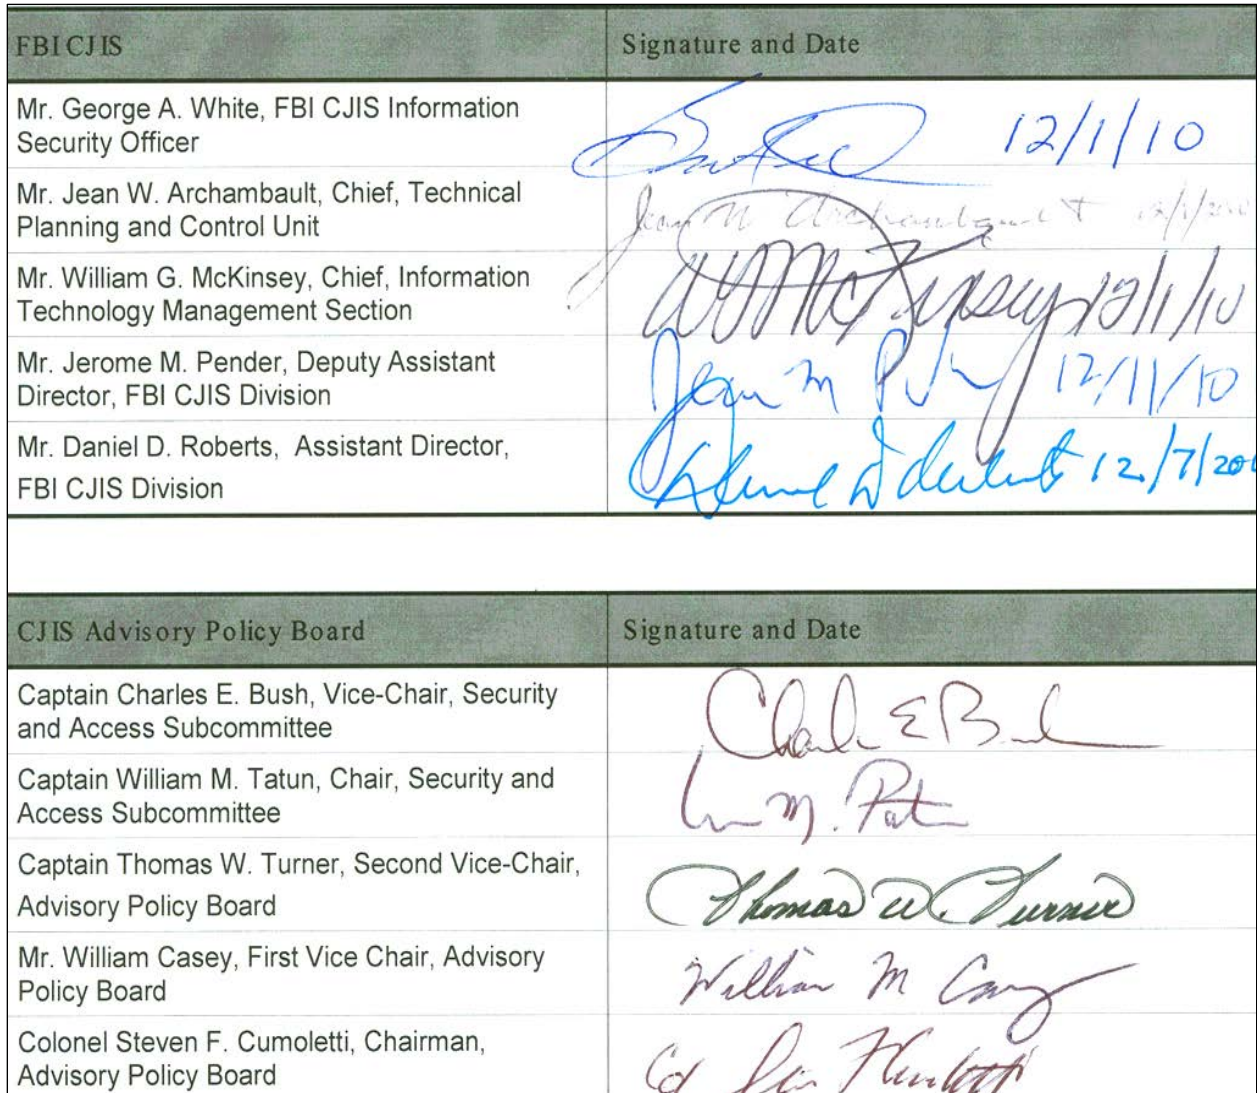 FBI CJIS Signature and Date
Mr. George A. White, FBI CJIS Information
Security Officer
12/1/10
Mr. Jean W. Archambault, Chief, Technical
Planning and Control Unit
Jean W Archambault 12/1/2010
Mr. William G. McKinsey, Chief, Information
Technology Management Section
WGMcKinsey 12/1/10
Mr. Jerome M. Pender, Deputy Assistant
Director, FBI CJIS Division
Mr. Daniel D. Roberts, Assistant Director,
FBI CJIS Division
12/7/20
CJIS Advisory Policy Board Signature and Date
Captain Charles E. Bush, Vice-Chair, Security
and Access Subcommittee
Charles E Bush
Captain William M. Tatun, Chair, Security and
Access Subcommittee
Captain Thomas W. Turner, Second Vice-Chair,
Advisory Policy Board
Thomas W. Turner
Mr. William Casey, First Vice Chair, Advisory
Policy Board
William M Casey
Colonel Steven F. Cumoletti, Chairman,
Advisory Policy Board